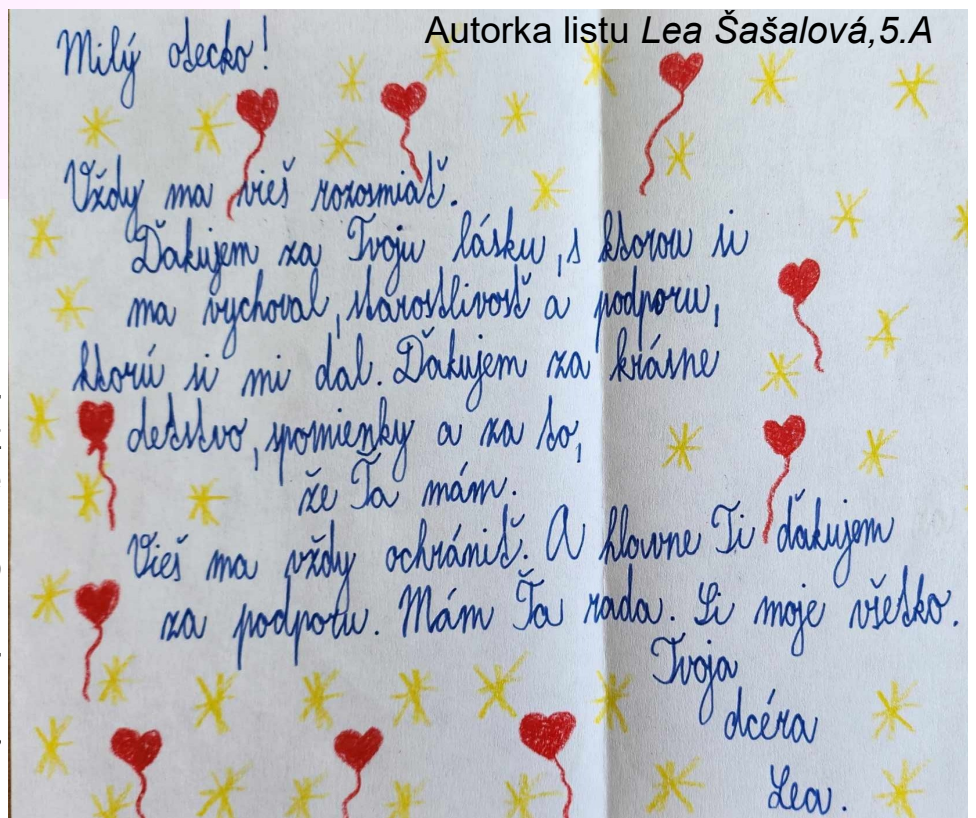 Autorka listu Lea Šašalová,5.A
Milý otecko!
Vždy ma vieš rozosmiať.
Ďakujem za Tvoju lásku, s ktorou si
ma vychoval, starostlivosť a podporu,
ktorú si mi dal. Ďakujem za krásne
detstvo, spomienky a za to,
že Ťa mám.
Vieš ma vždy ochrániť. A hlavne Ti ďakujem
za podporu. Mám Ťa rada. Si moje všetko.
Tvoja
dcéra
Lea.